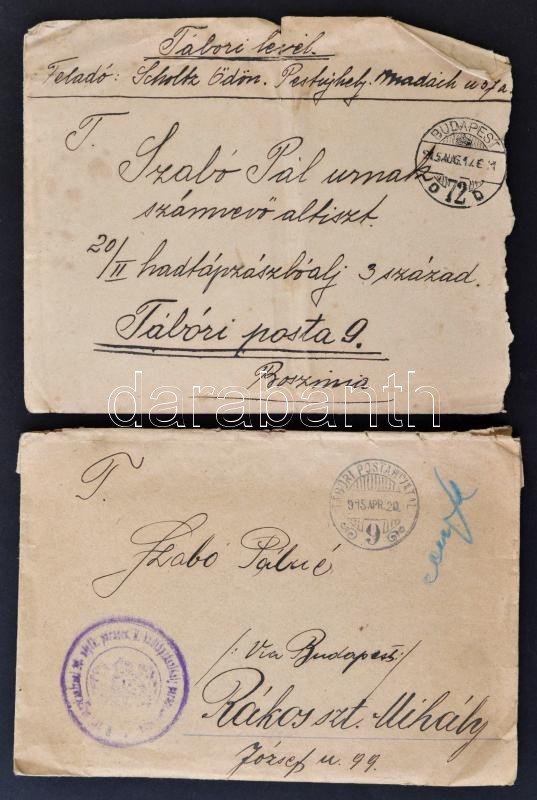 Tábori levél.
Feladó: Scholtz Ödön. Pestujhely. Madách u 57a
BUDAPEST
915 AUG. 17.
72
T.
Szabó Pál urnak
számvevő altiszt.
20/II hadtápzászlóalj 3 század.
Tábóri posta 9.
Boszinia
darabanth
T.
TÁBORI POSTAHIVATAL
915 APR. 20
9
Szabó Pálné
/: Via Budapest :/
Rákosszt. Mihály
József u. 99.